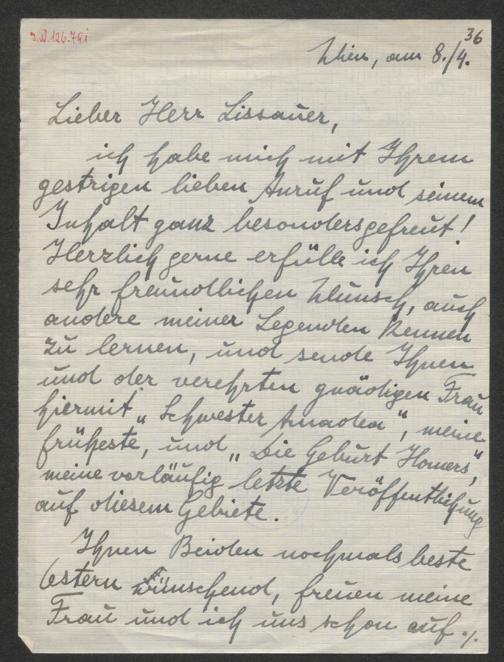 J.N. 126.791
36
Wien, am 8./4.
Lieber Herr Lissauer,
ich habe mich mit Ihrem
gestrigen lieben Anruf und seinem
Inhalt ganz besonders gefreut!
Herzlich gerne erfülle ich Ihren
sehr freundlichen Wunsch, auch
andere meiner Legenden kennen
zu lernen, und sende Ihnen
und der verehrten gnädigen Frau
hiermit „Schwester Amadea“, meine
früheste, und „Die Geburt Homers“,
meine vorläufig letzte Veröffentlichung
auf diesem Gebiete.
Ihnen Beiden nochmals beste
Ostern wünschend, freuen meine
Frau und ich uns schon auf ./.